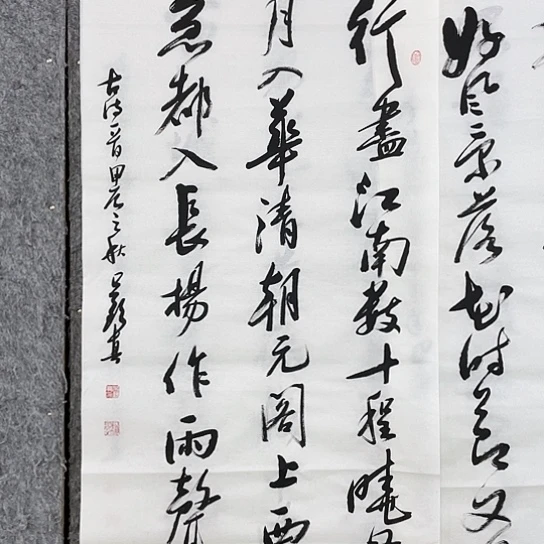 好风景落花时节又
行尽江南数十程晓
月入华清朝元阁上西
急都入长杨作雨声
古诗一首甲辰之秋